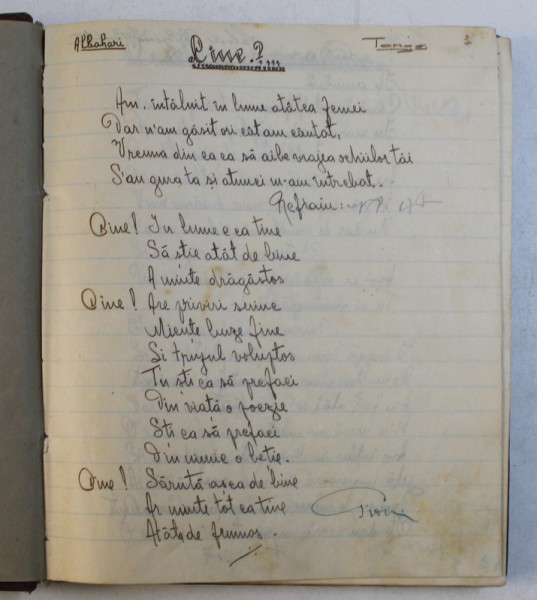 Albahari
Cine?...
Tango
3
Am întâlnit în lume atâtea femei
Dar n'am găsit ni ce am căutat,
Vreuna din ea ca să aibe vrajea ochiilor tăi
S'au gura ta și atunci m-am întrebat.
Refrain:
Cine! In lume e ca tine
Să stie atât de bine
A minte drăgăstos
Cine! Are priviri senine
Minte buze fine
Si trupul voluptos
Tu sti ca să prefaci
Din viată o poezie
Sti ca să prefaci
Din nimic o betie.
Cine! Sărută asea de bine
Ar minte tot ca tine
Atâta de frumos.